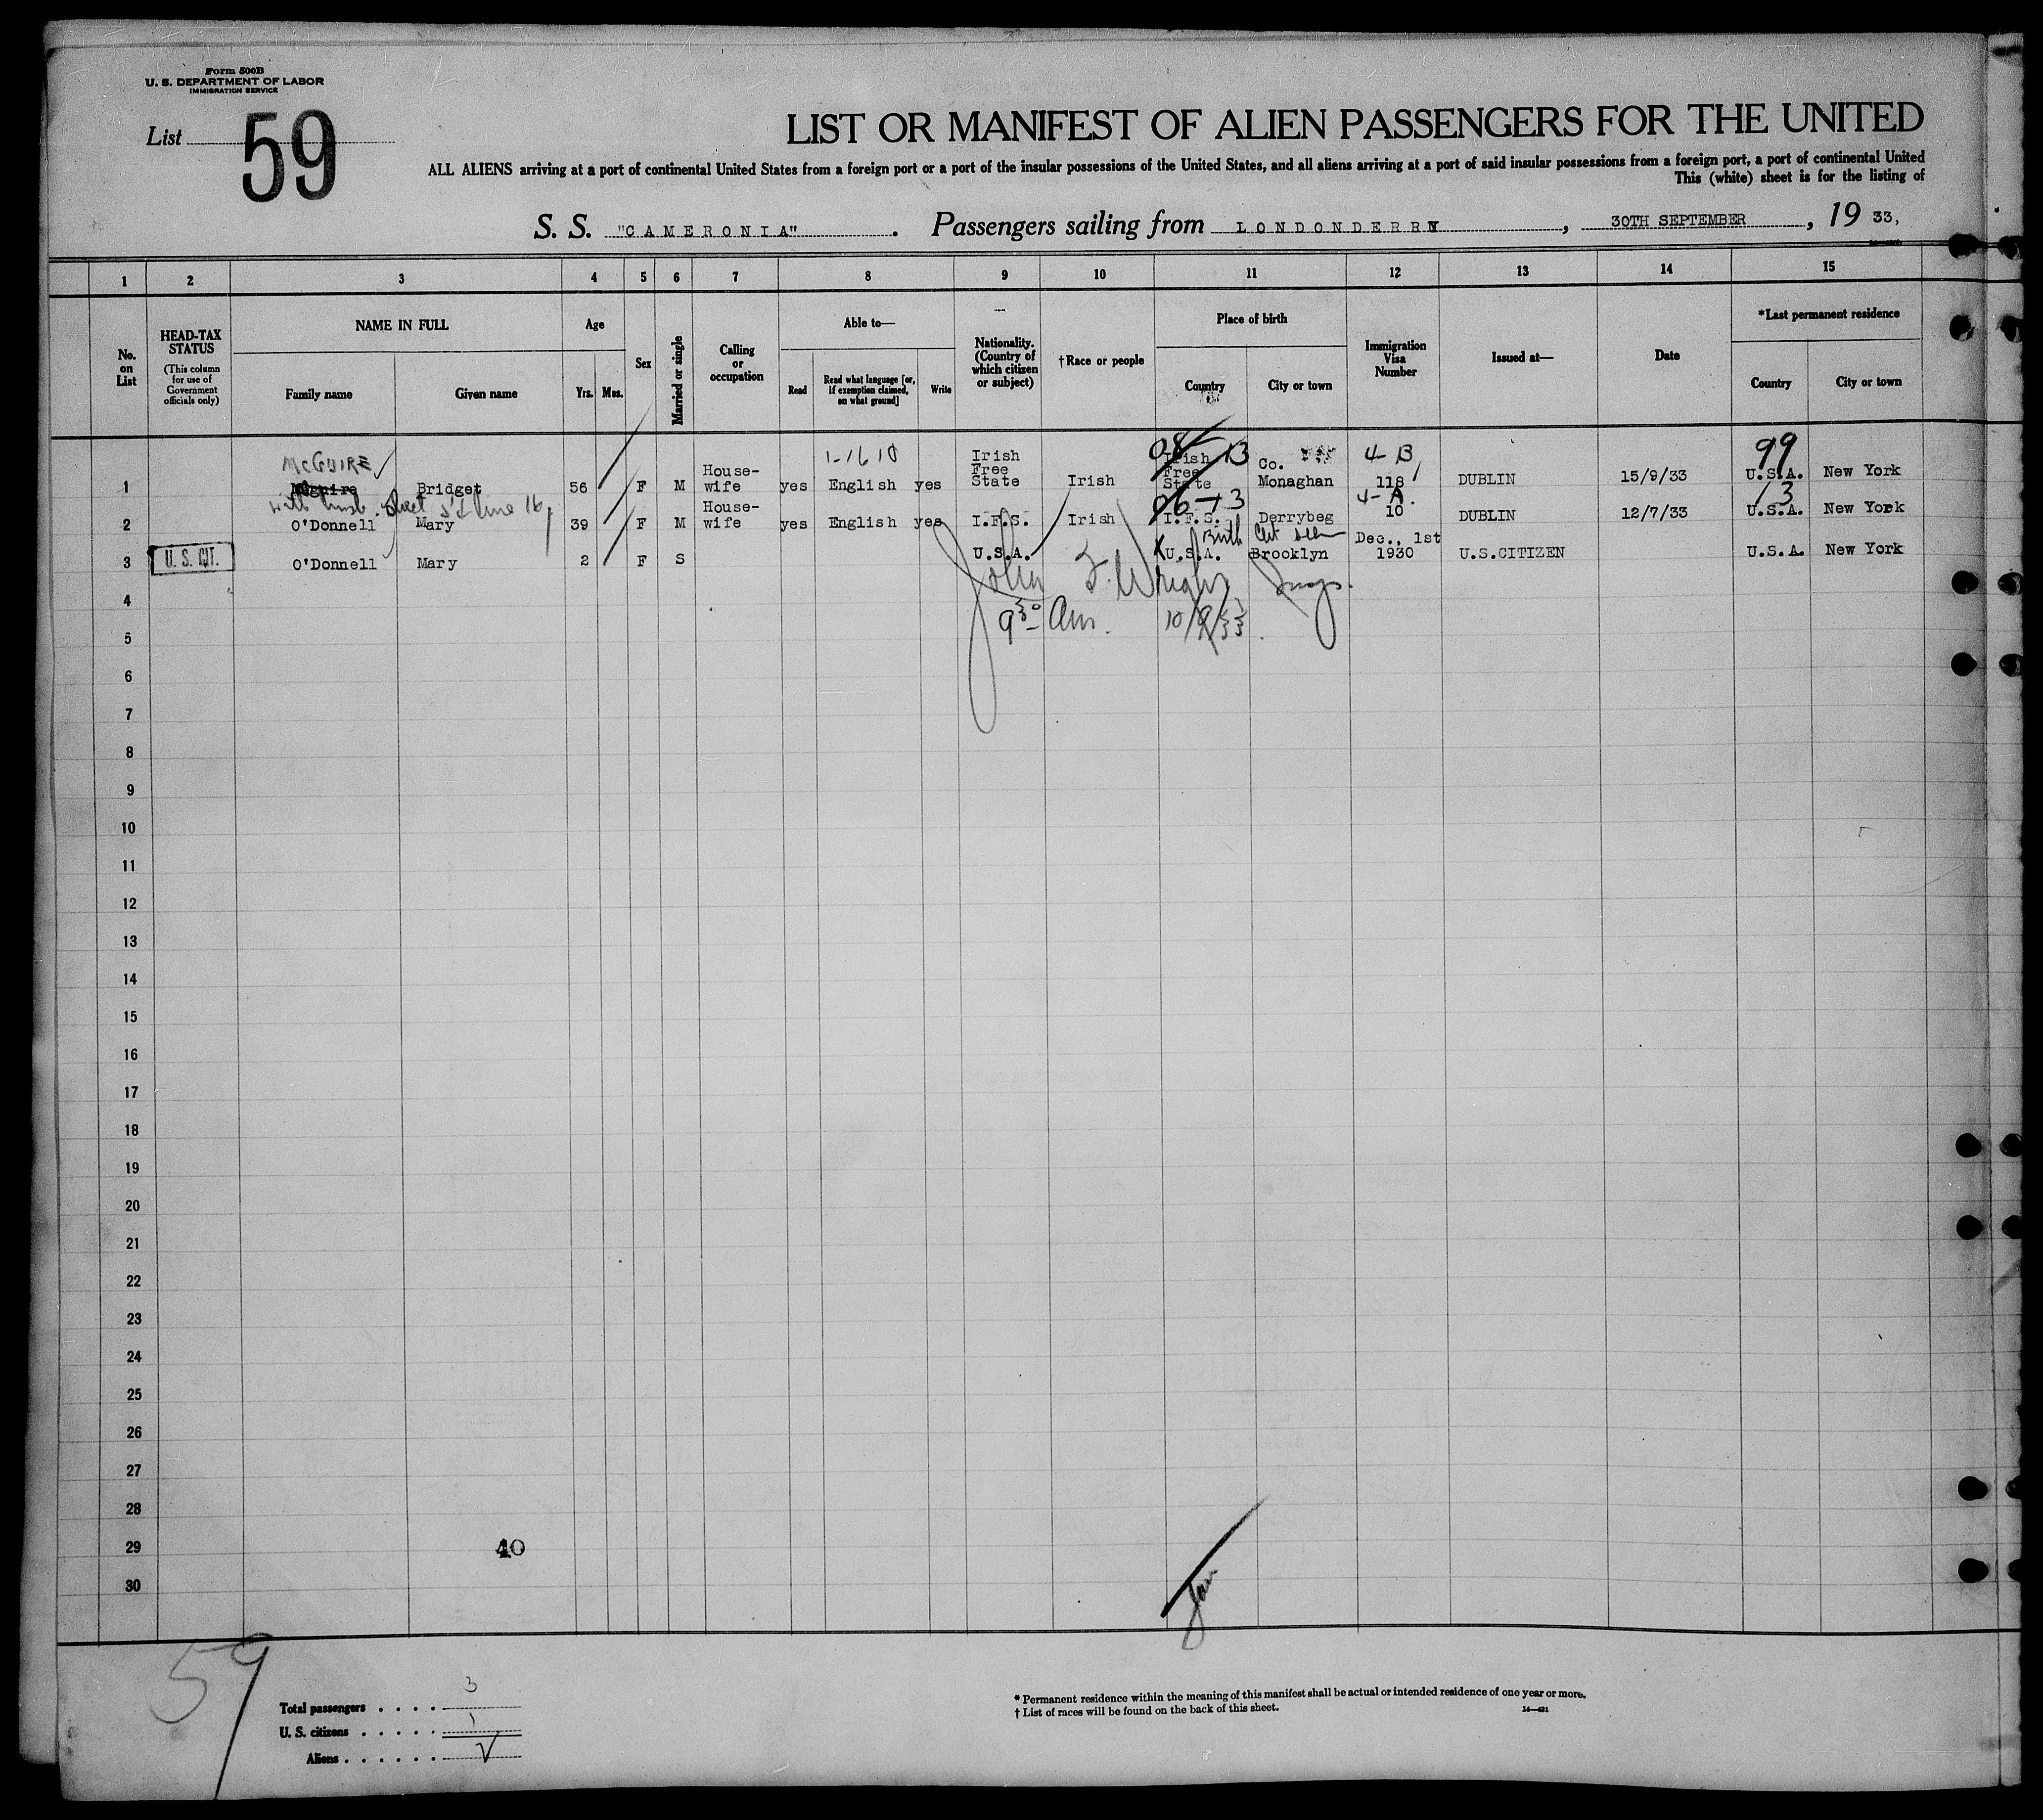 Form 500B
U. S. DEPARTMENT OF LABOR
IMMIGRATION SERVICE
List 59
LIST OR MANIFEST OF ALIEN PASSENGERS FOR THE UNITED
ALL ALIENS arriving at a port of continental United States from a foreign port or a port of the insular possessions of the United States, and all aliens arriving at a port of said insular possessions from a foreign port, a port of continental United
This (white) sheet is for the listing of
S. S. "CAMERONIA". Passengers sailing from LONDONDERRY, 30TH SEPTEMBER, 19 33,
1 2 3 4 5 6 7 8 9 10 11 12 13 14 15
No. on List
HEAD-TAX STATUS
(This column for use of Government officials only)
NAME IN FULL
Family name Given name
Age
Yrs. Mos.
Sex
Married or single
Calling or occupation
Able to—
Read
Read what language [or, if exemption claimed, on what ground]
Write
Nationality. (Country of which citizen or subject)
†Race or people
Place of birth
Country City or town
Immigration Visa Number
Issued at—
Date
*Last permanent residence
Country City or town
McGUIRE 4-B 99
1 Maguire Bridget 56 F M House-wife yes English yes Irish Free State Irish Irish Free State Co. Monaghan 118 DUBLIN 15/9/33 U.S.A. New York
with husb. sheet line 16
06-13 4-A. 13
2 O'Donnell Mary 39 F M House-wife yes English yes I.F.S. Irish I.F.S. Derrybeg 10 DUBLIN 12/7/33 U.S.A. New York
Birth
3 U. S. CIT. O'Donnell Mary 2 F S U.S.A. U.S.A. Brooklyn Dec., 1st 1930 U.S.CITIZEN U.S.A. New York
John F. Wright Insp.
9 30 Am. 10/9/33.
4
5
6
7
8
9
10
11
12
13
14
15
16
17
18
19
20
21
22
23
24
25
26
27
28
29 40
30
59
Total passengers . . . . 3
U. S. citizens . . . . . 1
Aliens . . . . . .
* Permanent residence within the meaning of this manifest shall be actual or intended residence of one year or more.
† List of races will be found on the back of this sheet.